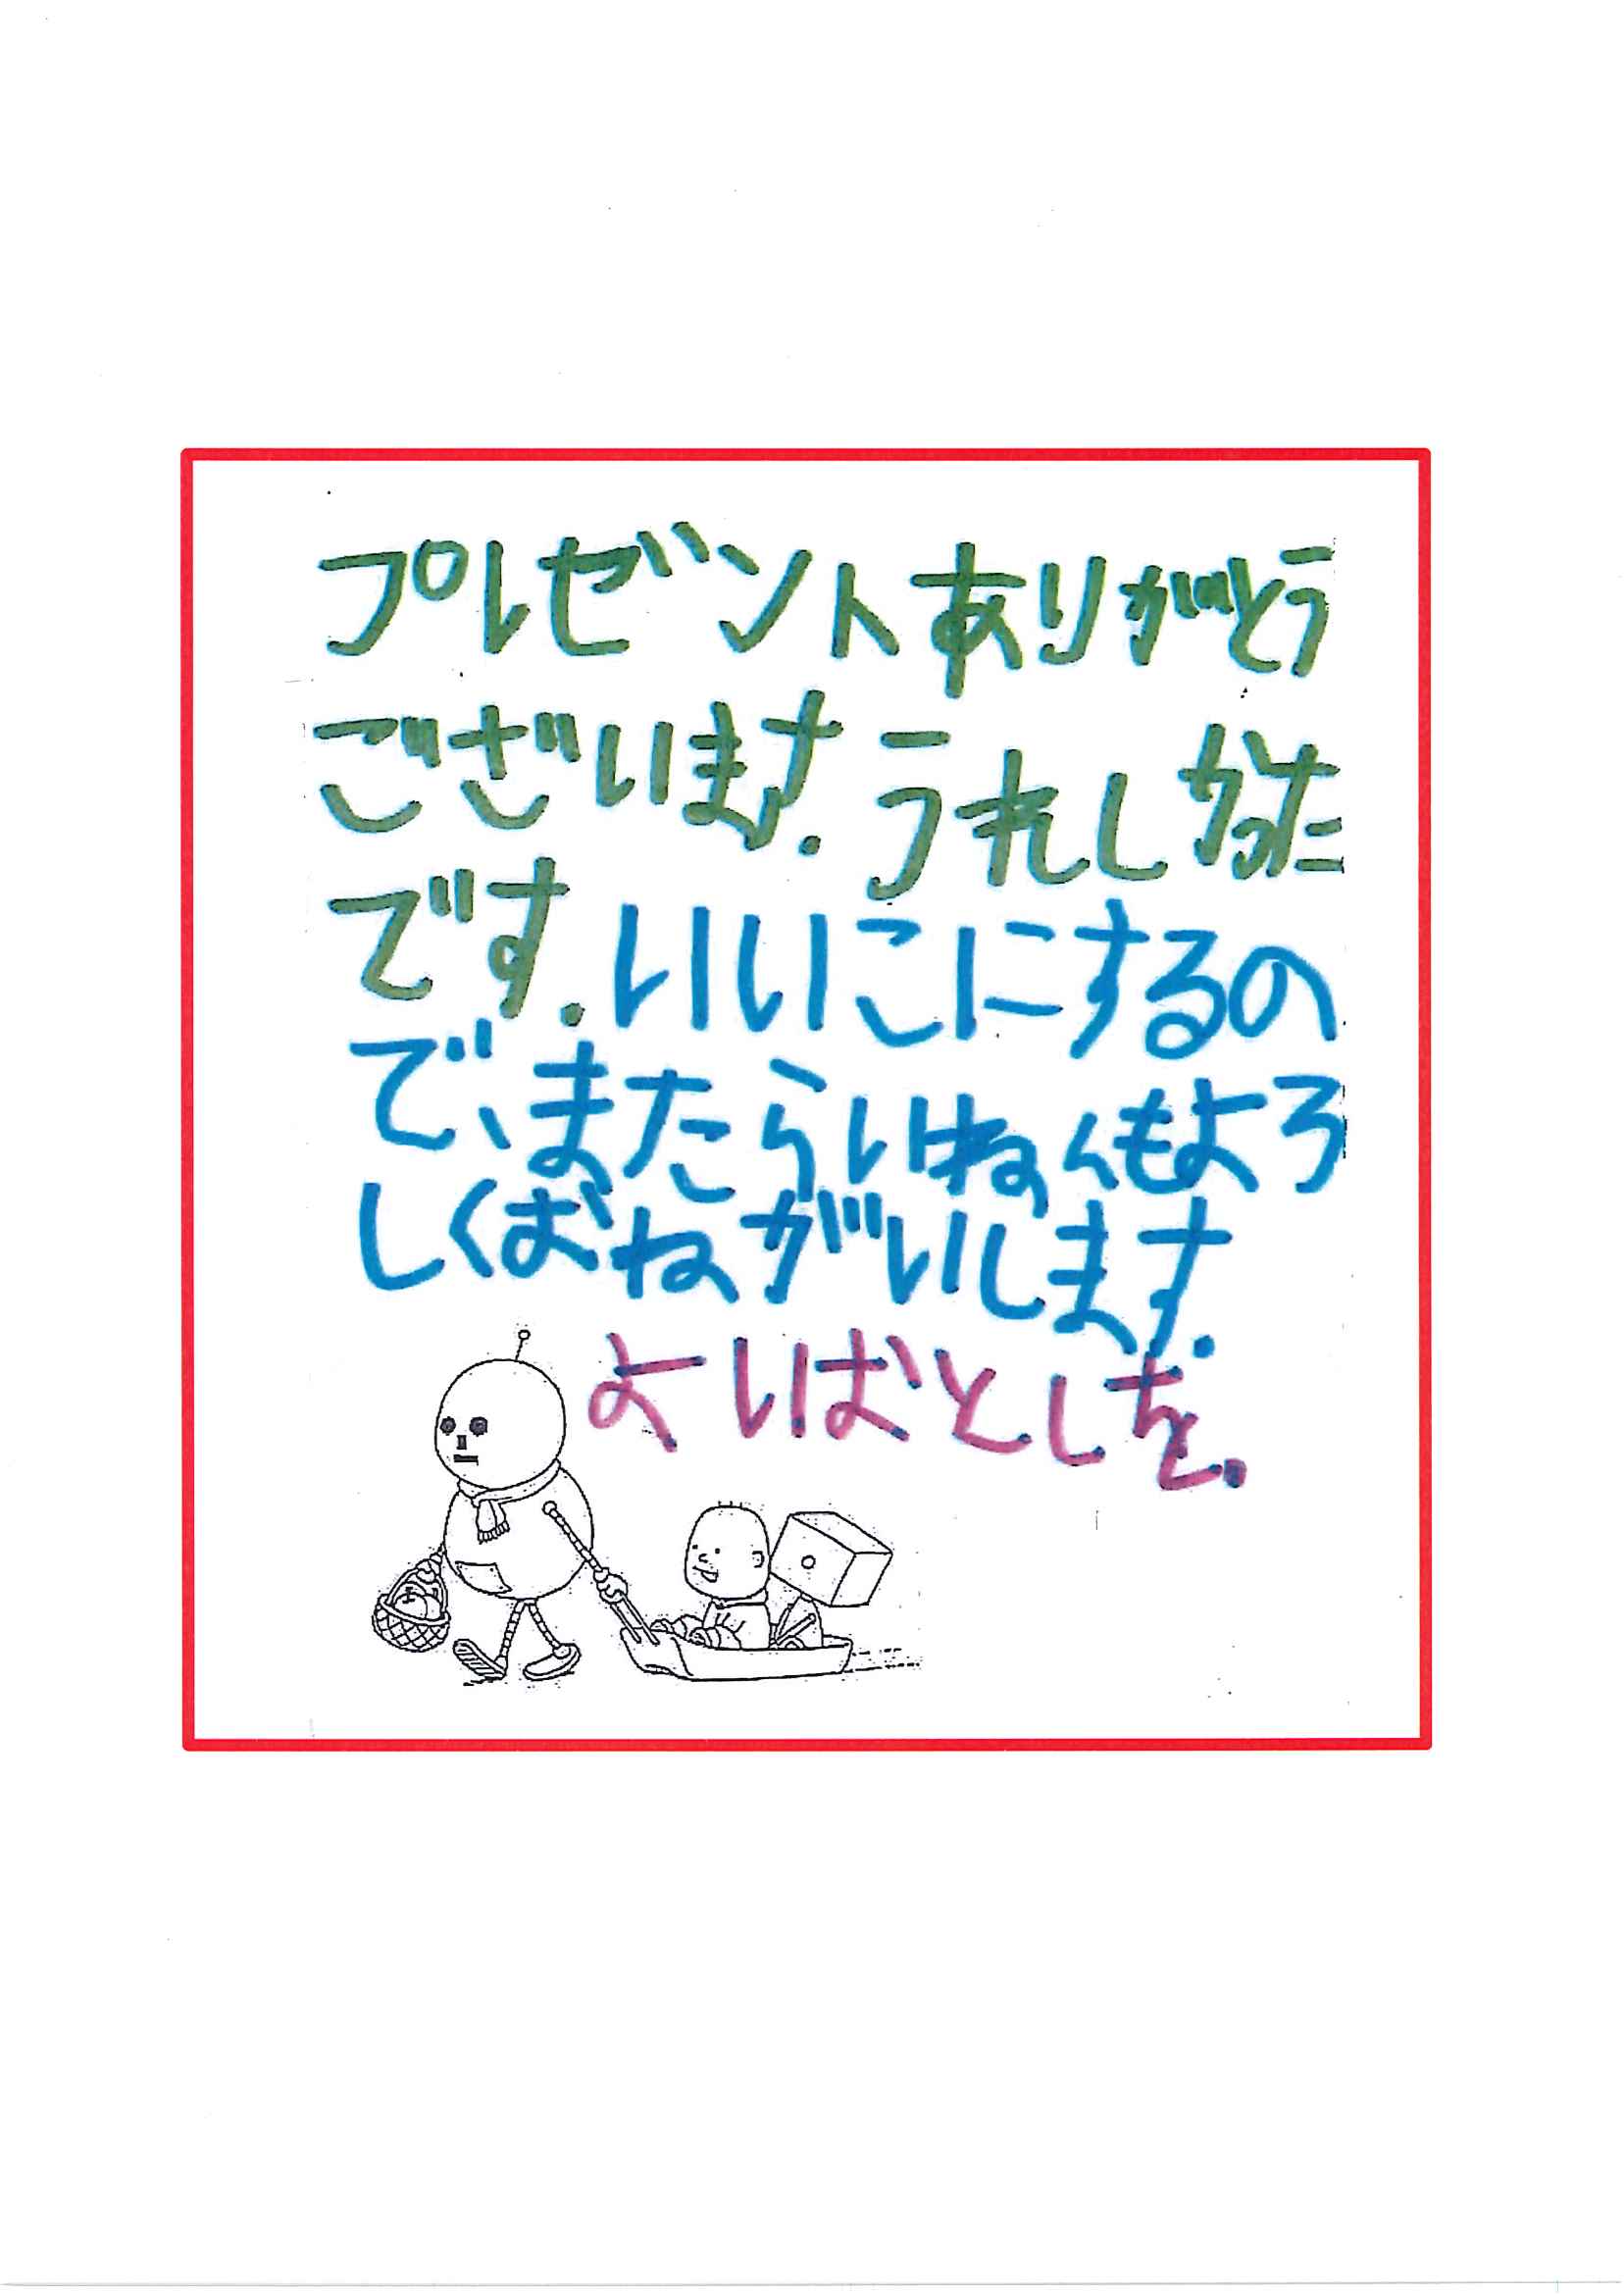 プレゼントありがとう
ございます.うれしかった
です.いいこにするの
で、またらいねんもよろ
しくおねがいします.
よいおとしを.